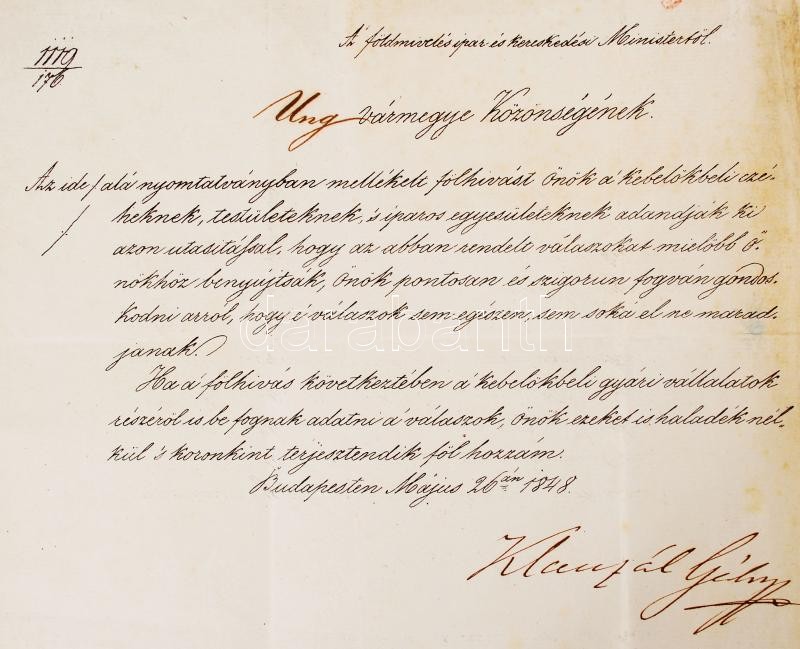 A' földmivelés ipar és kereskedési Ministertöl.
1119
176
Ung vármegye Közönségének.
Az ide / alá nyomtatványban mellékelt fölhivást önök a' kebelökbeli czé-
heknek, testületeknek, 's iparos egyesületeknek adandják ki
azon utasitással, hogy az abban rendelt válaszokat mielöbb ö-
nökhöz benyújtsák, önök pontosan és szigorun fogván gondos-
kodni arról, hogy é válaszok sem egészen, sem soká el ne marad-
janak.
Ha a' fölhivás következtében a' kebelökbeli gyári vállalatok
részéröl is be fognak adatni a' válaszok, önök ezeket is, haladék nél-
kül 's koronkint terjesztendik föl hozzám.
Budapesten Május 26án 1848.
Klauzál Gábor
darabanth